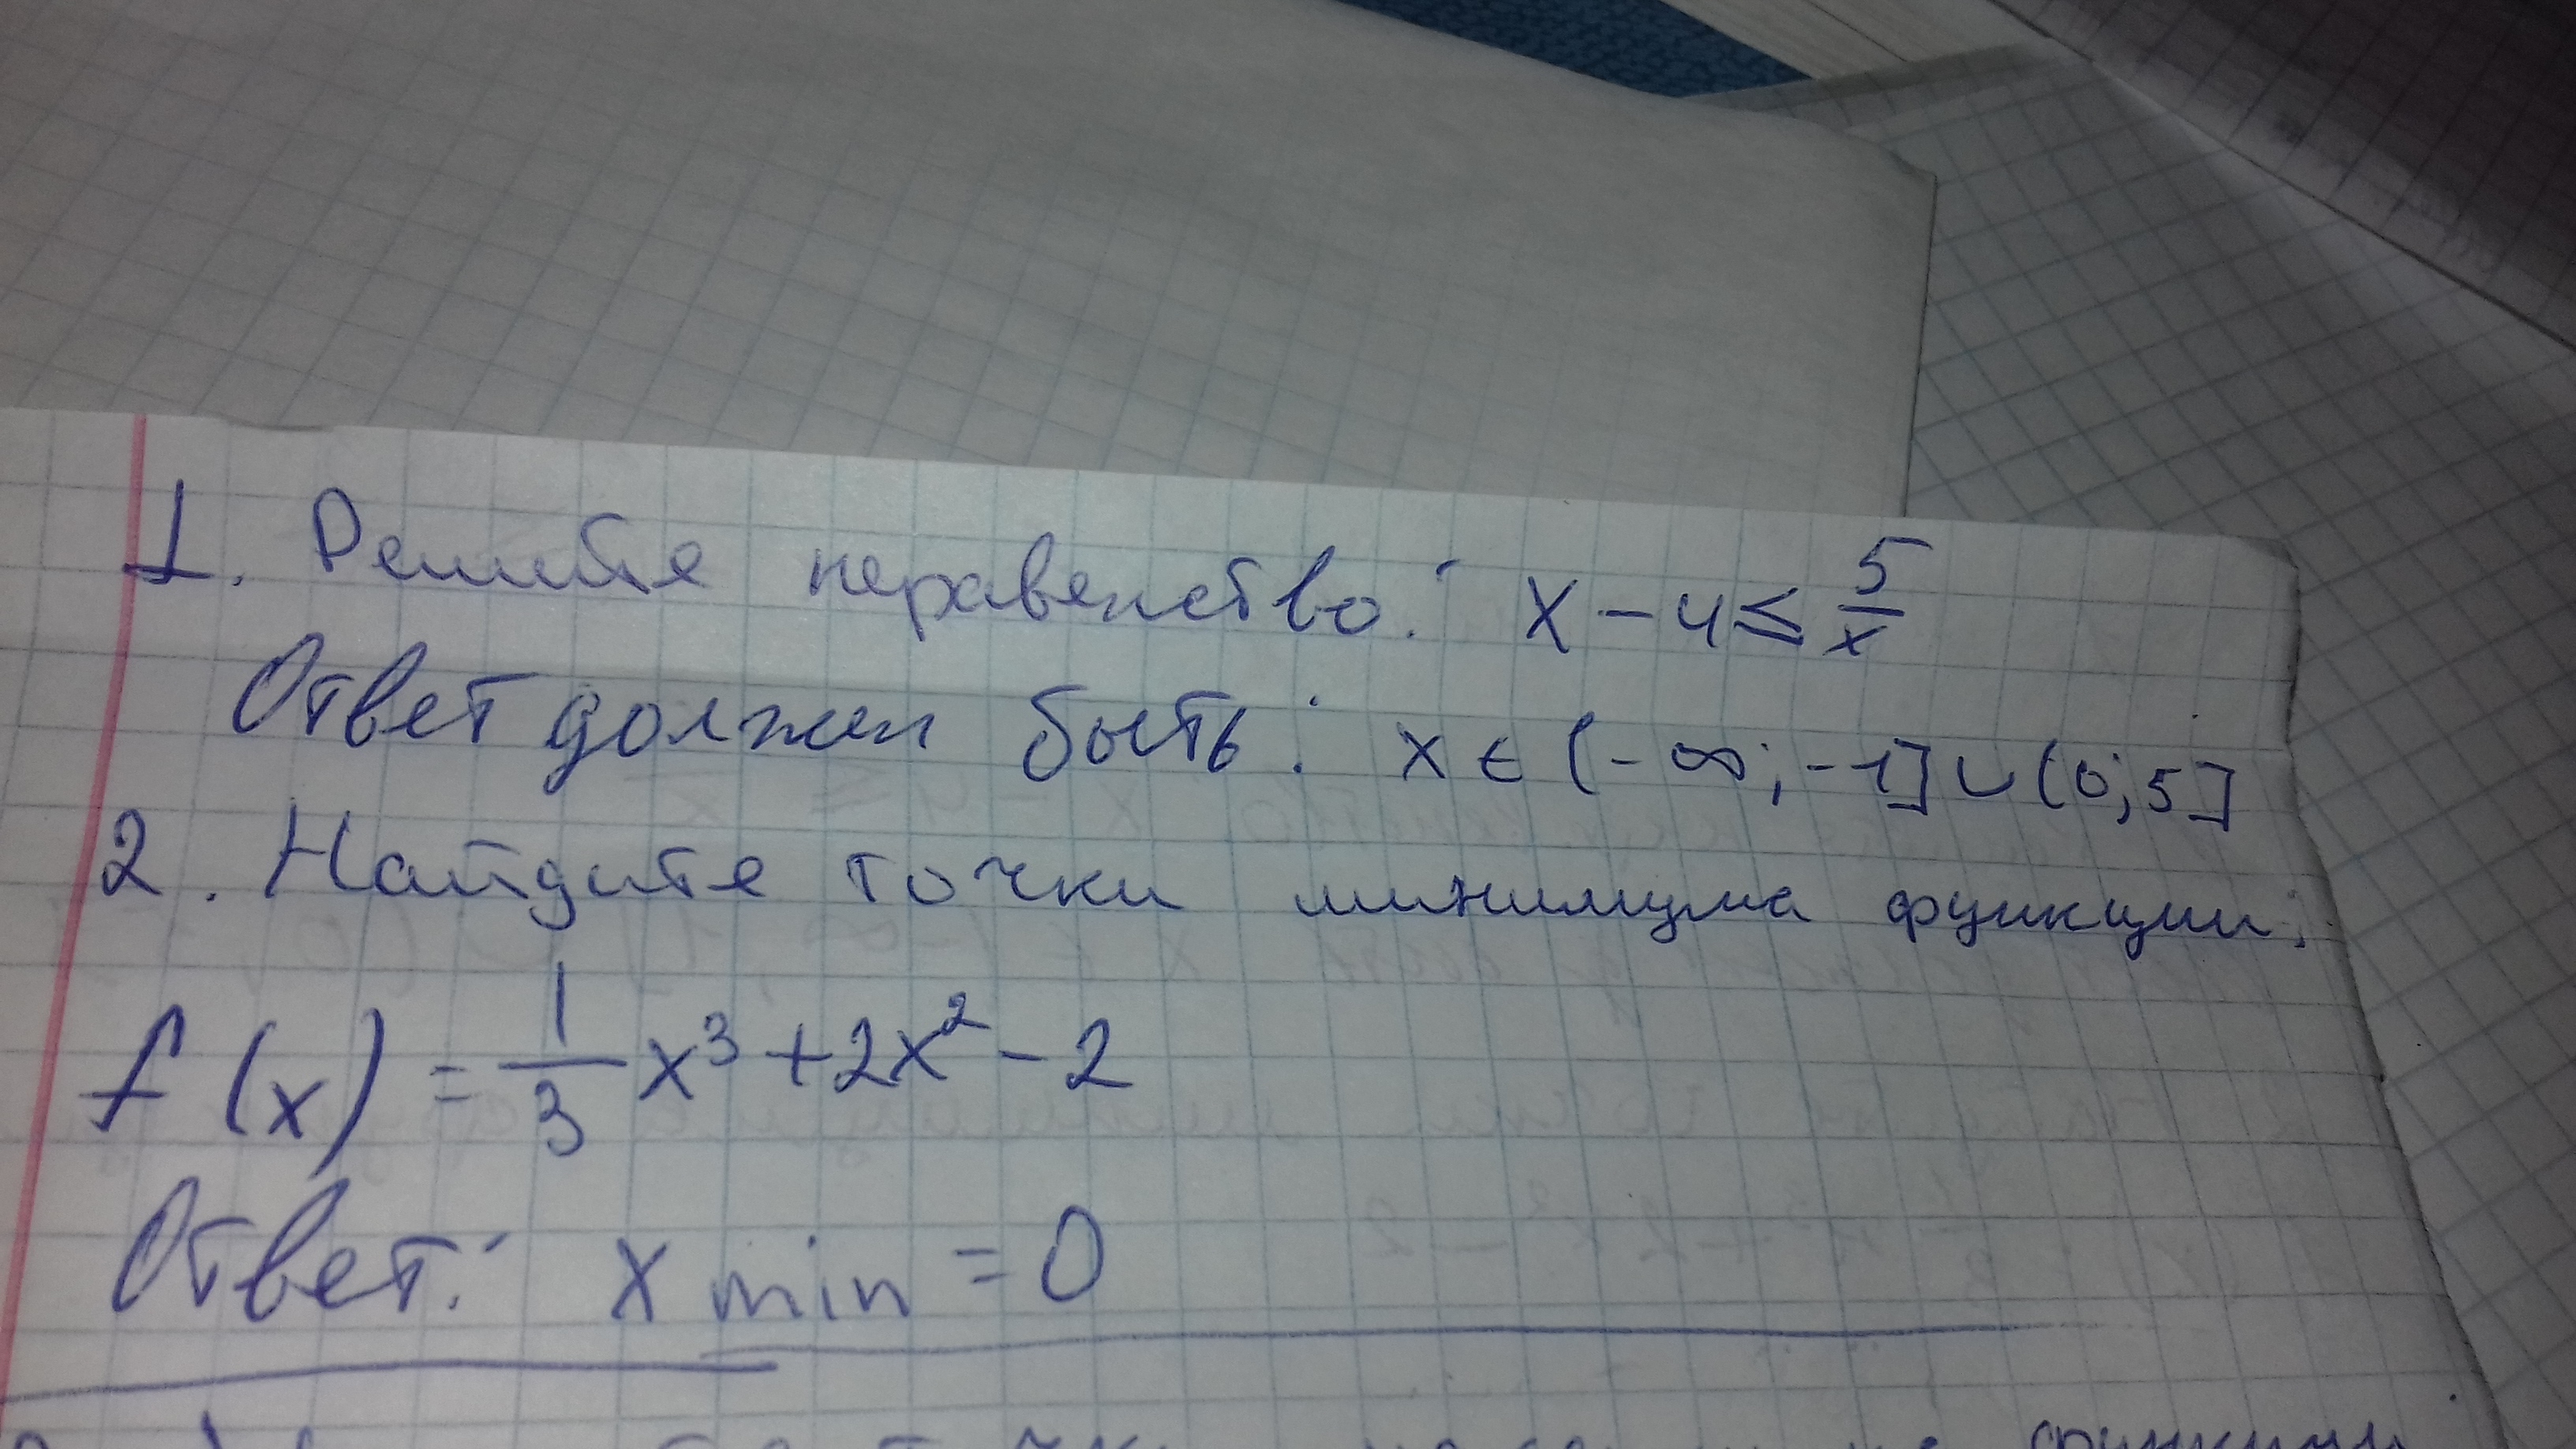 1. Решите неравенство: x - 4 ≤ 5/x
Ответ должен быть: x ∈ (-∞; -1] ∪ (0; 5]
2. Найдите точки минимума функции:
f(x) = 1/3 x³ + 2x² - 2
Ответ: x min = 0
функции